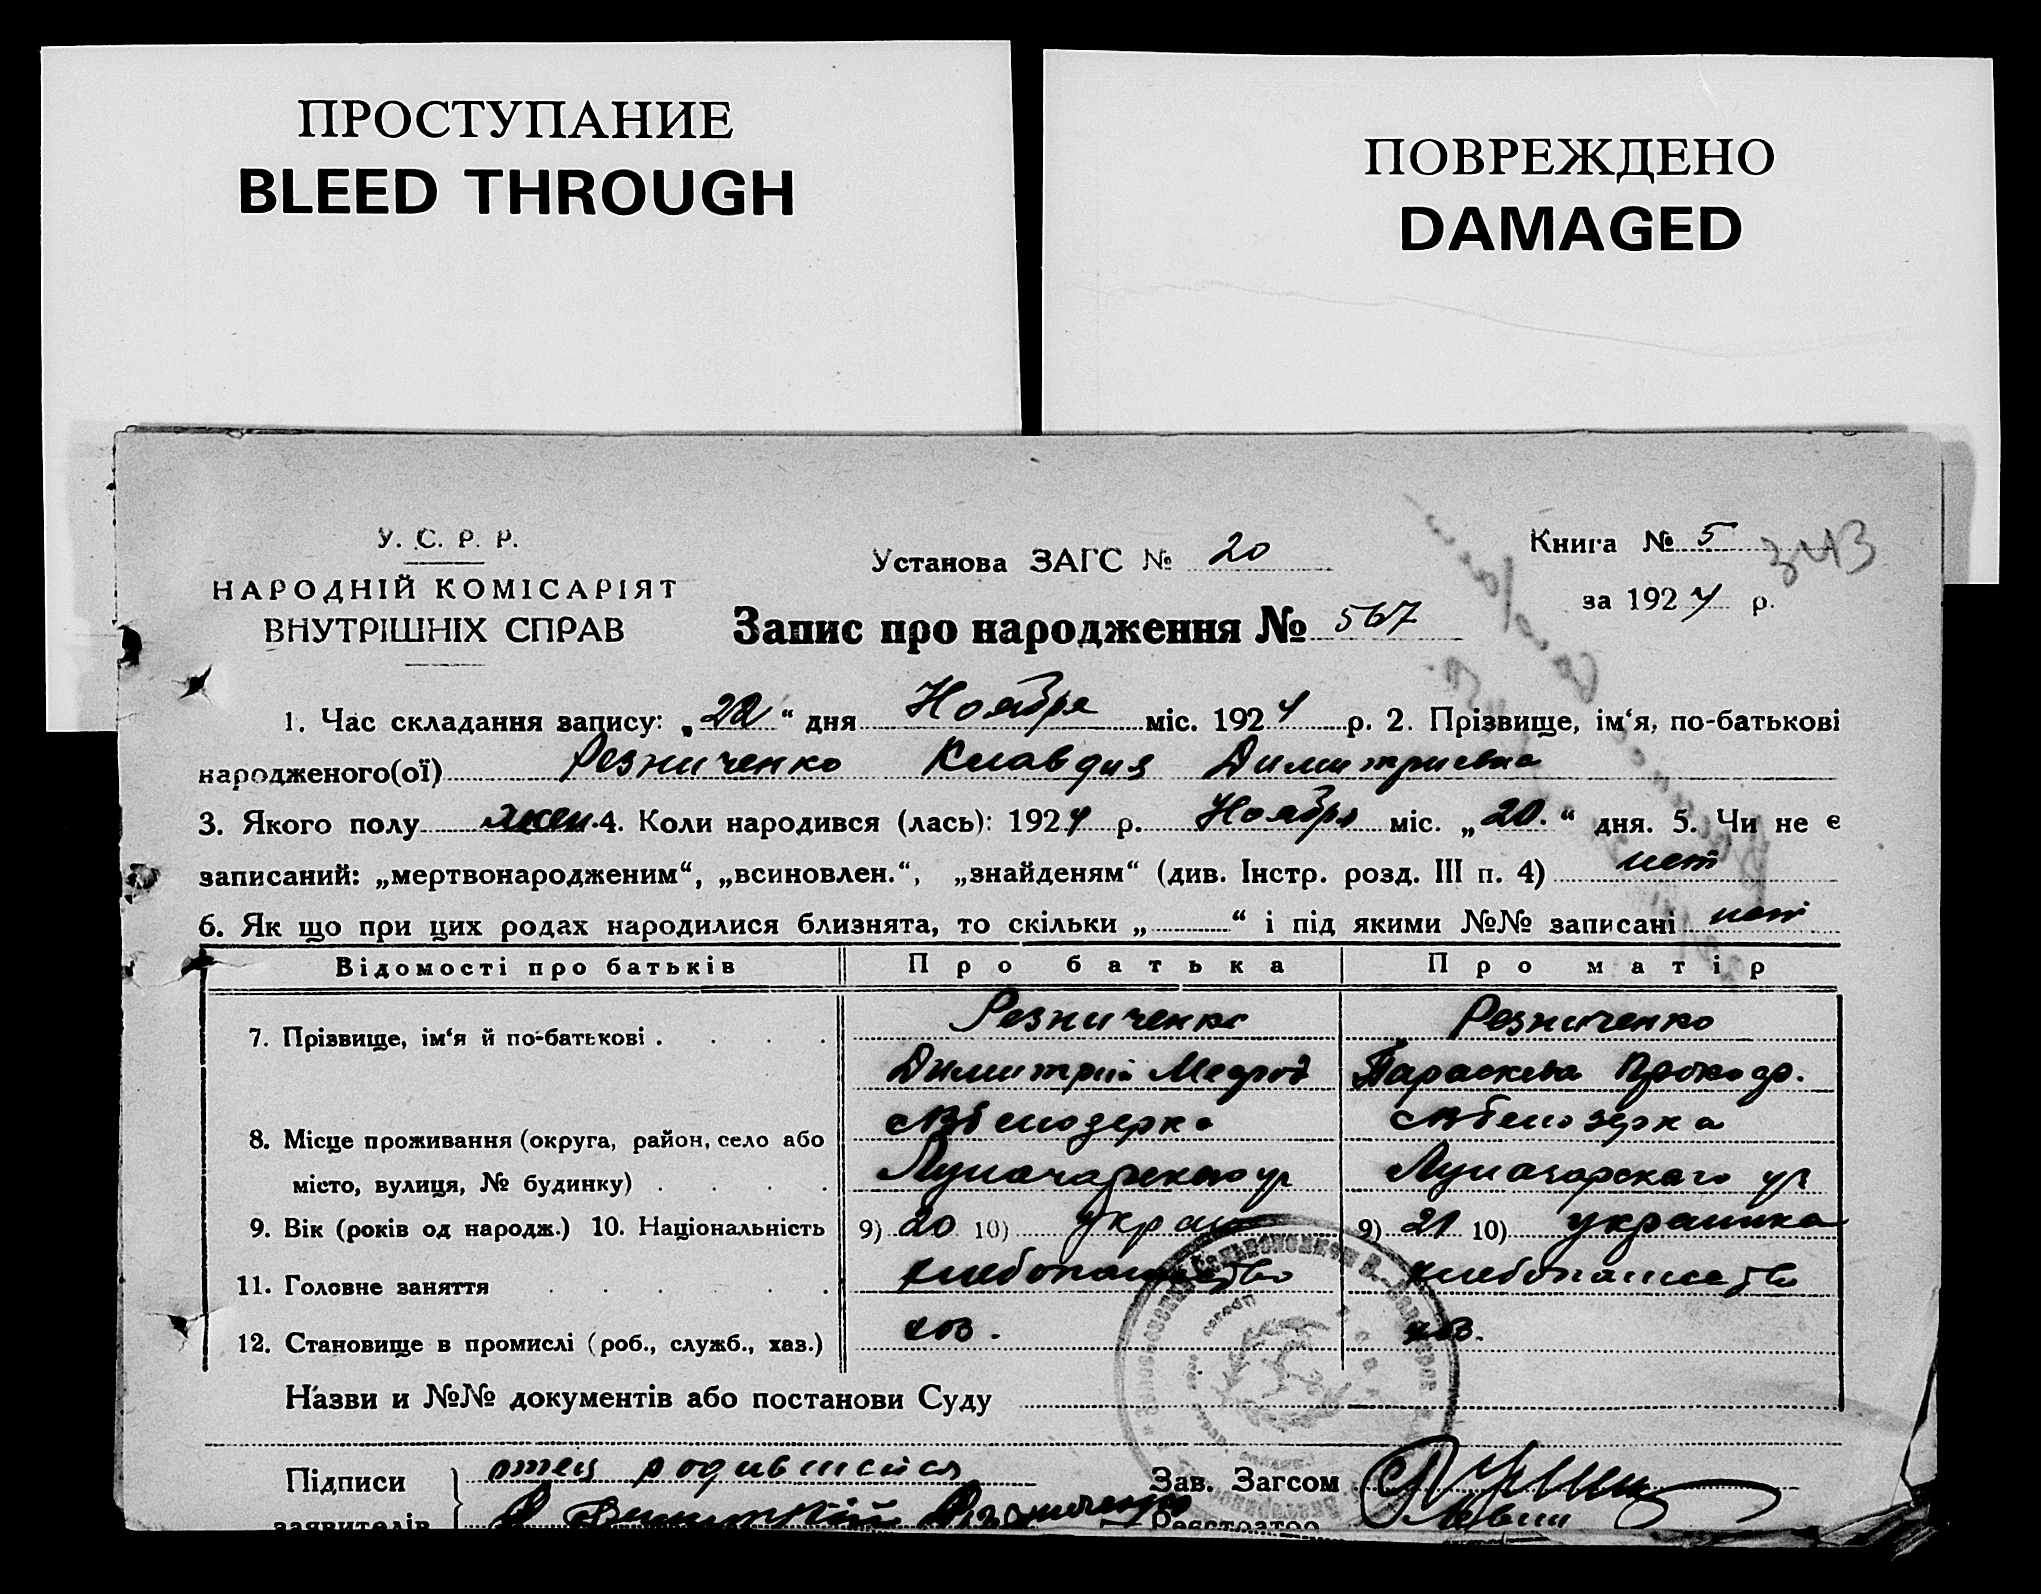 ПРОСТУПАНИЕ
BLEED THROUGH
ПОВРЕЖДЕНО
DAMAGED
У. С. Р. Р.
НАРОДНІЙ КОМІСАРІЯТ
ВНУТРІШНІХ СПРАВ
Установа ЗАГС № 20
Книга № 5
за 1924 р.
Запис про народження № 567
1. Час складання запису: „22“ дня Ноября міс. 1924 р. 2. Прізвище, ім‘я, по-батькові
народженого(ої) Резниченко Клавдия Димитриевна
3. Якого полу жен. 4. Коли народився (лась): 1924 р. Ноября міс. „20.“ дня. 5. Чи не є
записаний: „мертвонародженим“, „всиновлен.“, „знайденям“ (див. Інстр. розд. III п. 4) нет
6. Як що при цих родах народилися близнята, то скільки „ “ і під якими №№ записані нет
Відомості про батьків Про батька Про матір
7. Прізвище, ім‘я й по-батькові . . . . Резниченко Резниченко
Димитрий Параскева
8. Місце проживання (округа, район, село або Белозерка Белозерка
місто, вулиця, № будинку) . . . . Луначарского ул Луначарскаго ул
9. Вік (років од народж.) 10. Національність 9) 20 10) украин 9) 21 10) украинка
11. Головне заняття . . . . . хлебопашество хлебопашество
12. Становище в промислі (роб., служб., хаз.) хоз. хоз.
Назви и №№ документів або постанови Суду
Підписи отец родившейся Зав. Загсом
заявителів Димитрий Резниченко Реєстратор